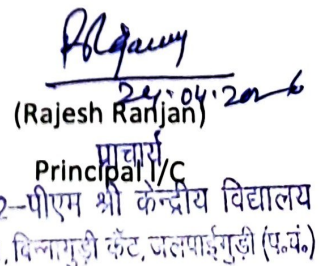 24.04.2026
(Rajesh Ranjan)
प्राचार्य
Principal I/C
2-पीएम श्री केन्द्रीय विद्यालय
, बिन्नागुड़ी कैंट, जलपाईगुड़ी (प.बं.)